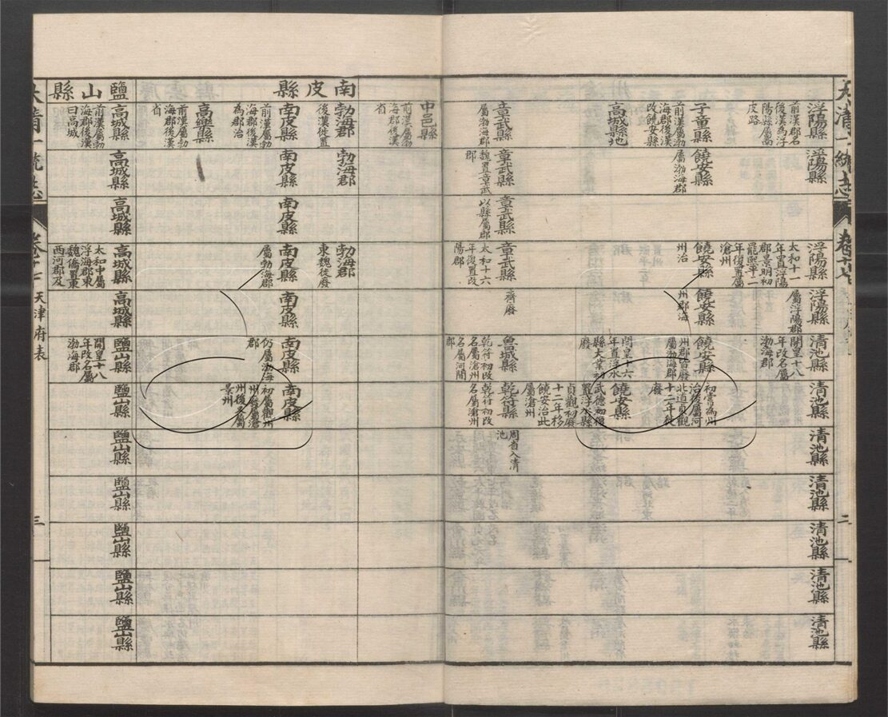 大清一統志
浮陽縣
前漢郡名
後漢為浮
陽縣屬高
皮路
浮陽縣
浮陽縣
太和十一
年置浮陽
郡景明初
熙平二
年復置屬
滄州
浮陽縣
屬浮陽郡
清池縣
開皇十八
年改名屬
渤海郡
清池縣
清池縣
清池縣
清池縣
清池縣
清池縣
二
子童縣
前漢屬勃
海郡後漢
改饒安縣
高城縣地
饒安縣
屬勃海郡
饒安縣
州治
饒安縣
饒安縣
州郡皆廢
屬渤海郡
開皇十六
年置浮水
縣大業初
廢
初常為州
治後屬河
北道貞觀
十二年移
饒安縣
武德初復
置浮水縣
貞觀初廢
十二年移
饒安治此
屬滄州
章武縣
屬勃海郡
章武縣
魏置章武
郡
章武縣
以縣屬郡
章武縣
太和十六
年復置改
陽郡
齊廢
魯城縣
乾符初改
名屬滄州
名屬河間
郡
乾符縣
乾符初改
名屬滄州
周省入清
池
中邑縣
前漢屬勃
海郡後漢
省
南皮縣
勃海郡
後漢徙置
勃海郡
勃海郡
東魏徙廢
南皮縣
前漢屬勃
海郡後漢
為郡治
南皮縣
南皮縣
南皮縣
屬勃海郡
南皮縣
南皮縣
仍屬渤海
郡
南皮縣
初屬觀州
州廢屬滄
州後又屬
景州
高樂縣
前漢屬勃
海郡後漢
省
鹽山縣
高城縣
前漢屬勃
海郡後漢
曰高城
高城縣
高城縣
高城縣
太和中屬
浮陽郡東
魏僑置東
西河郡及
高城縣
鹽山縣
開皇十八
年改名屬
渤海郡
鹽山縣
鹽山縣
鹽山縣
鹽山縣
鹽山縣
鹽山縣
大清一統志
卷十七
天津府表
三